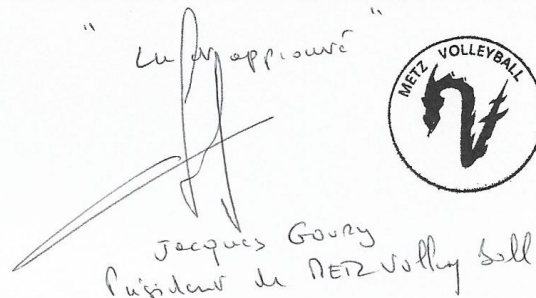 " Lu et approuvé "
METZ VOLLEYBALL
Jacques Goury
Président de METZ Volley Ball